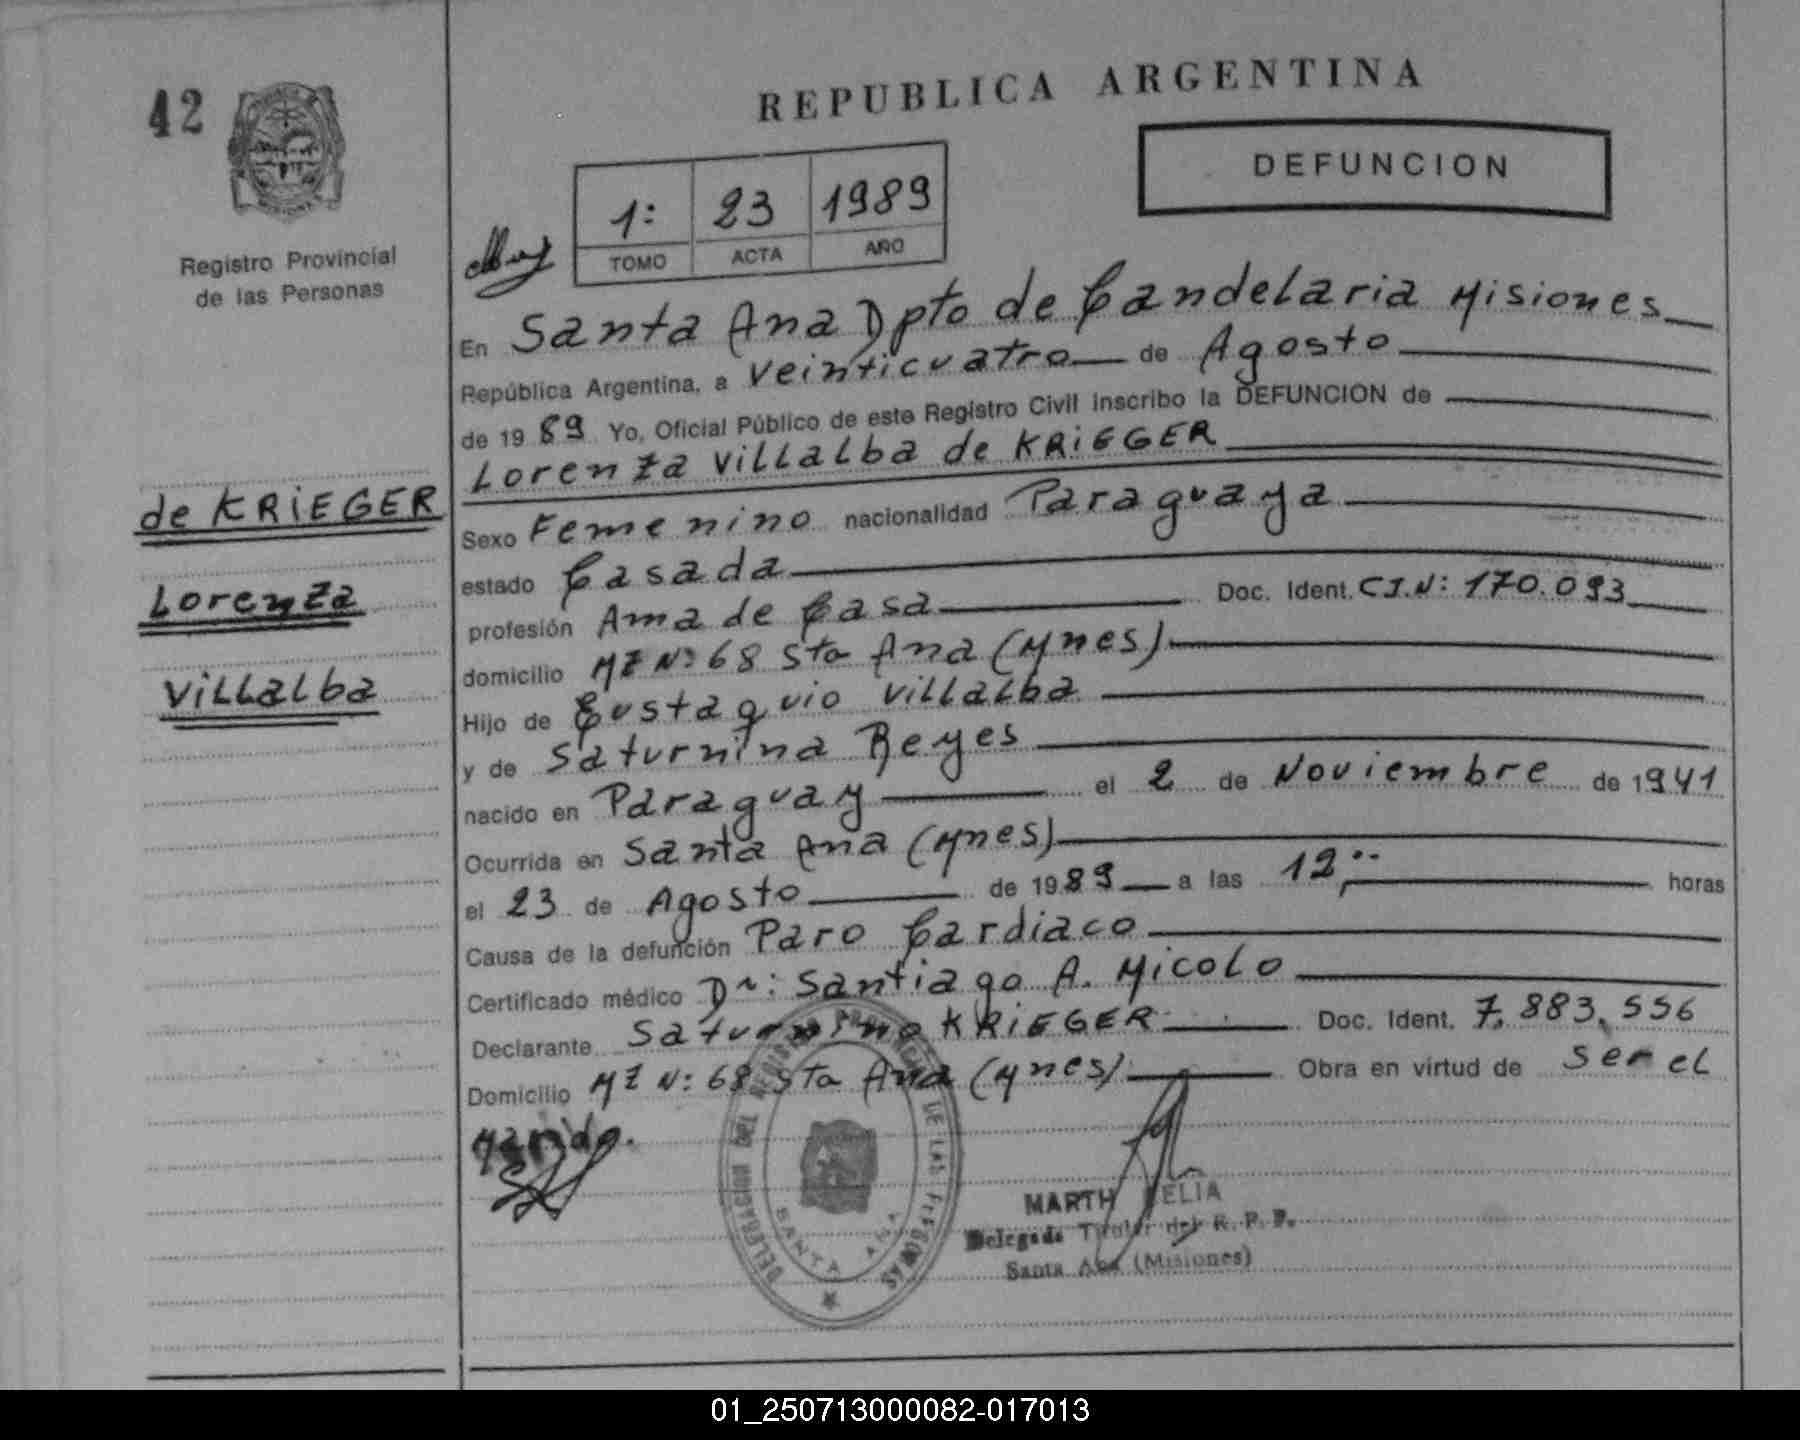 42
REPUBLICA ARGENTINA
DEFUNCION
1: 23 1989
TOMO ACTA AÑO
Registro Provincial
de las Personas
En Santa Ana Dpto de Candelaria Misiones
República Argentina, a veinticuatro de Agosto
de 1989 Yo, Oficial Público de este Registro Civil inscribo la DEFUNCION de
Lorenza Villalba de KRiEGER
de KRiEGER
Lorenza
Villalba
Sexo Femenino nacionalidad Paraguaya
estado Casada
profesión Ama de Casa Doc. Ident. C.I.N: 170.093
domicilio MZ Nº 68 Sta Ana (Mnes)
Hijo de Eustaquio Villalba
y de Saturnina Reyes
nacido en Paraguay el 2 de Noviembre de 1941
Ocurrida en Santa Ana (Mnes)
el 23 de Agosto de 1989 a las 12 horas
Causa de la defunción Paro Cardiaco
Certificado médico Dr: Santiago A. Micolo
Declarante Saturnino KRiEGER Doc. Ident. 7.883.556
Domicilio MZ N: 68 Sta Ana (Mnes) Obra en virtud de ser el
Marido.
DELEGACION DEL REGISTRO PROVINCIAL DE LAS PERSONAS
SANTA ANA
MARTH ELIA
Delegada Titular del R. P. P.
Santa Ana (Misiones)
01_250713000082-017013